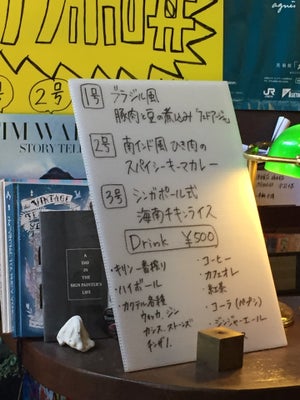 2号
agnès
JR
STORY TELL
VINTAGE
A DAY
IN THE
SIGN PAINTER'S
LIFE
1号 ブラジル風
豚肉と豆の煮込み「フェイジョアーダ」
2号 南インド風ひき肉の
スパイシーキーマカレー
3号 シンガポール式
海南チキンライス
Drink ¥500
・キリン一番搾り
・ハイボール
・カクテル各種
ウォッカ、ジン
・コーヒー
・カフェオレ
・紅茶
・コーラ(ペプシ)
・ジンジャーエール